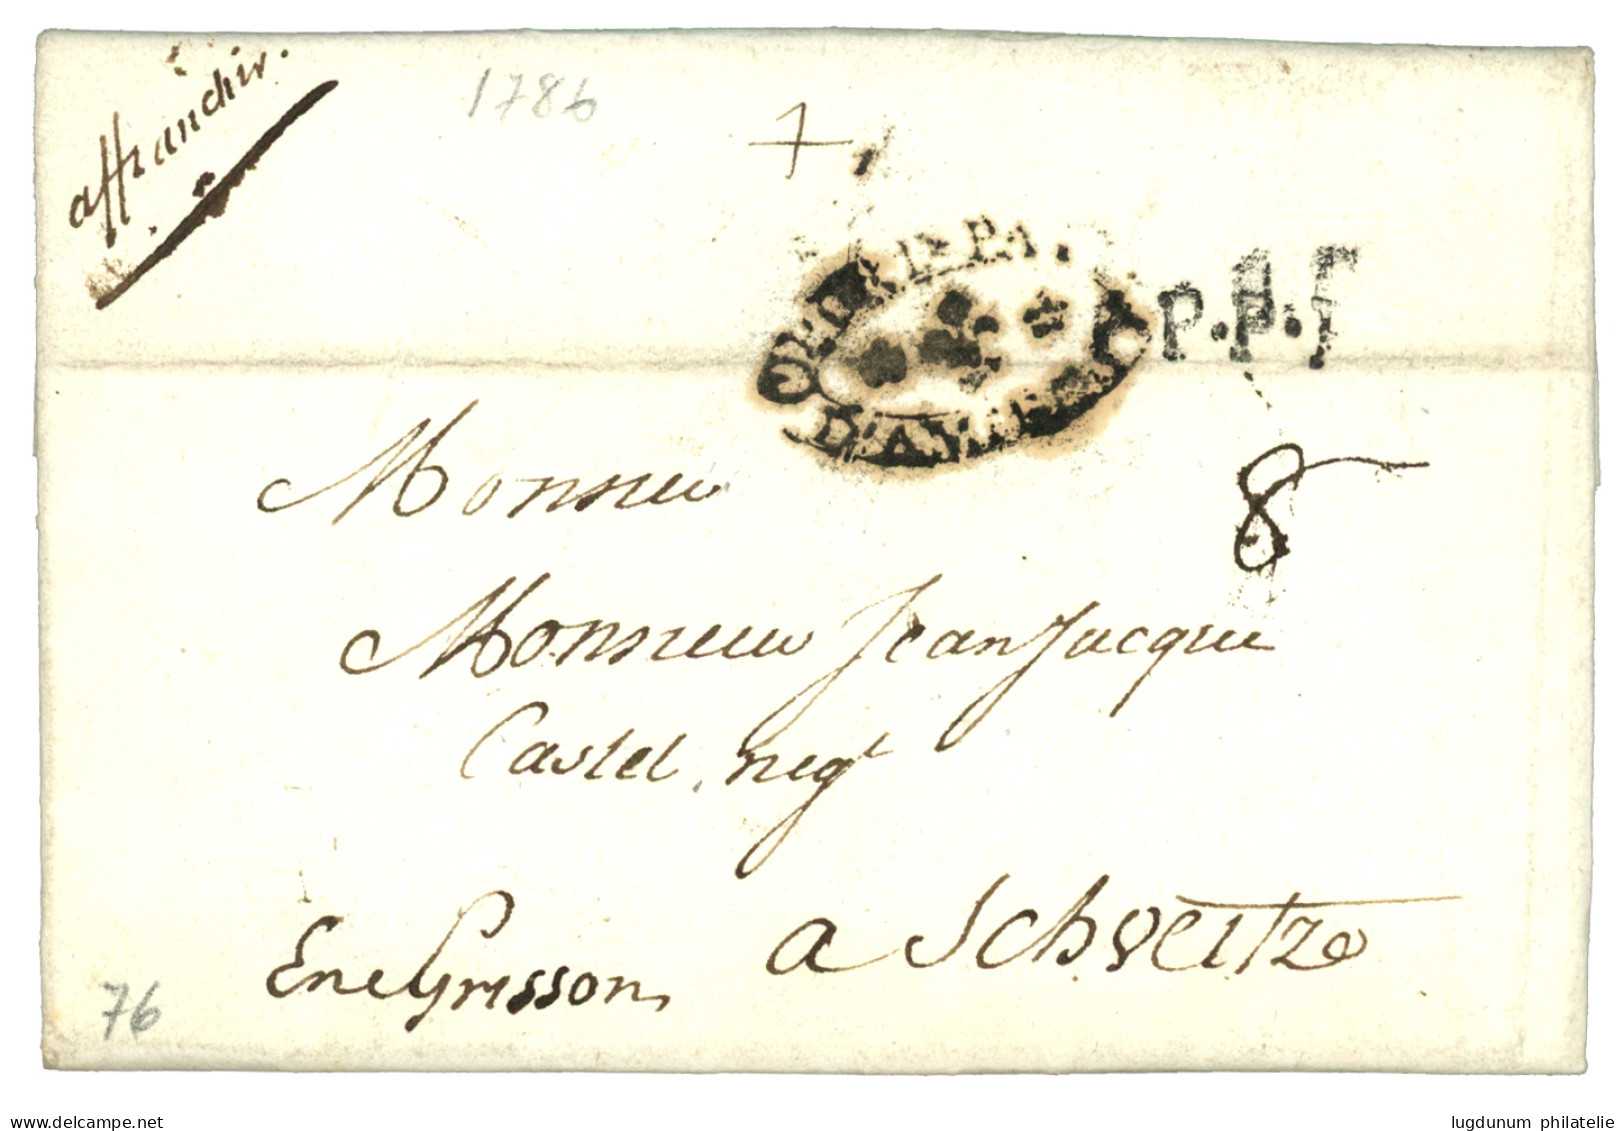 affranchir.
1786
D'AV
P.P.P.
8
Monsieur
Monsieur Jean Jacque
Castel negt
a Schveitze
En Grisson
76
delcampe.net
lugdunum philatelie